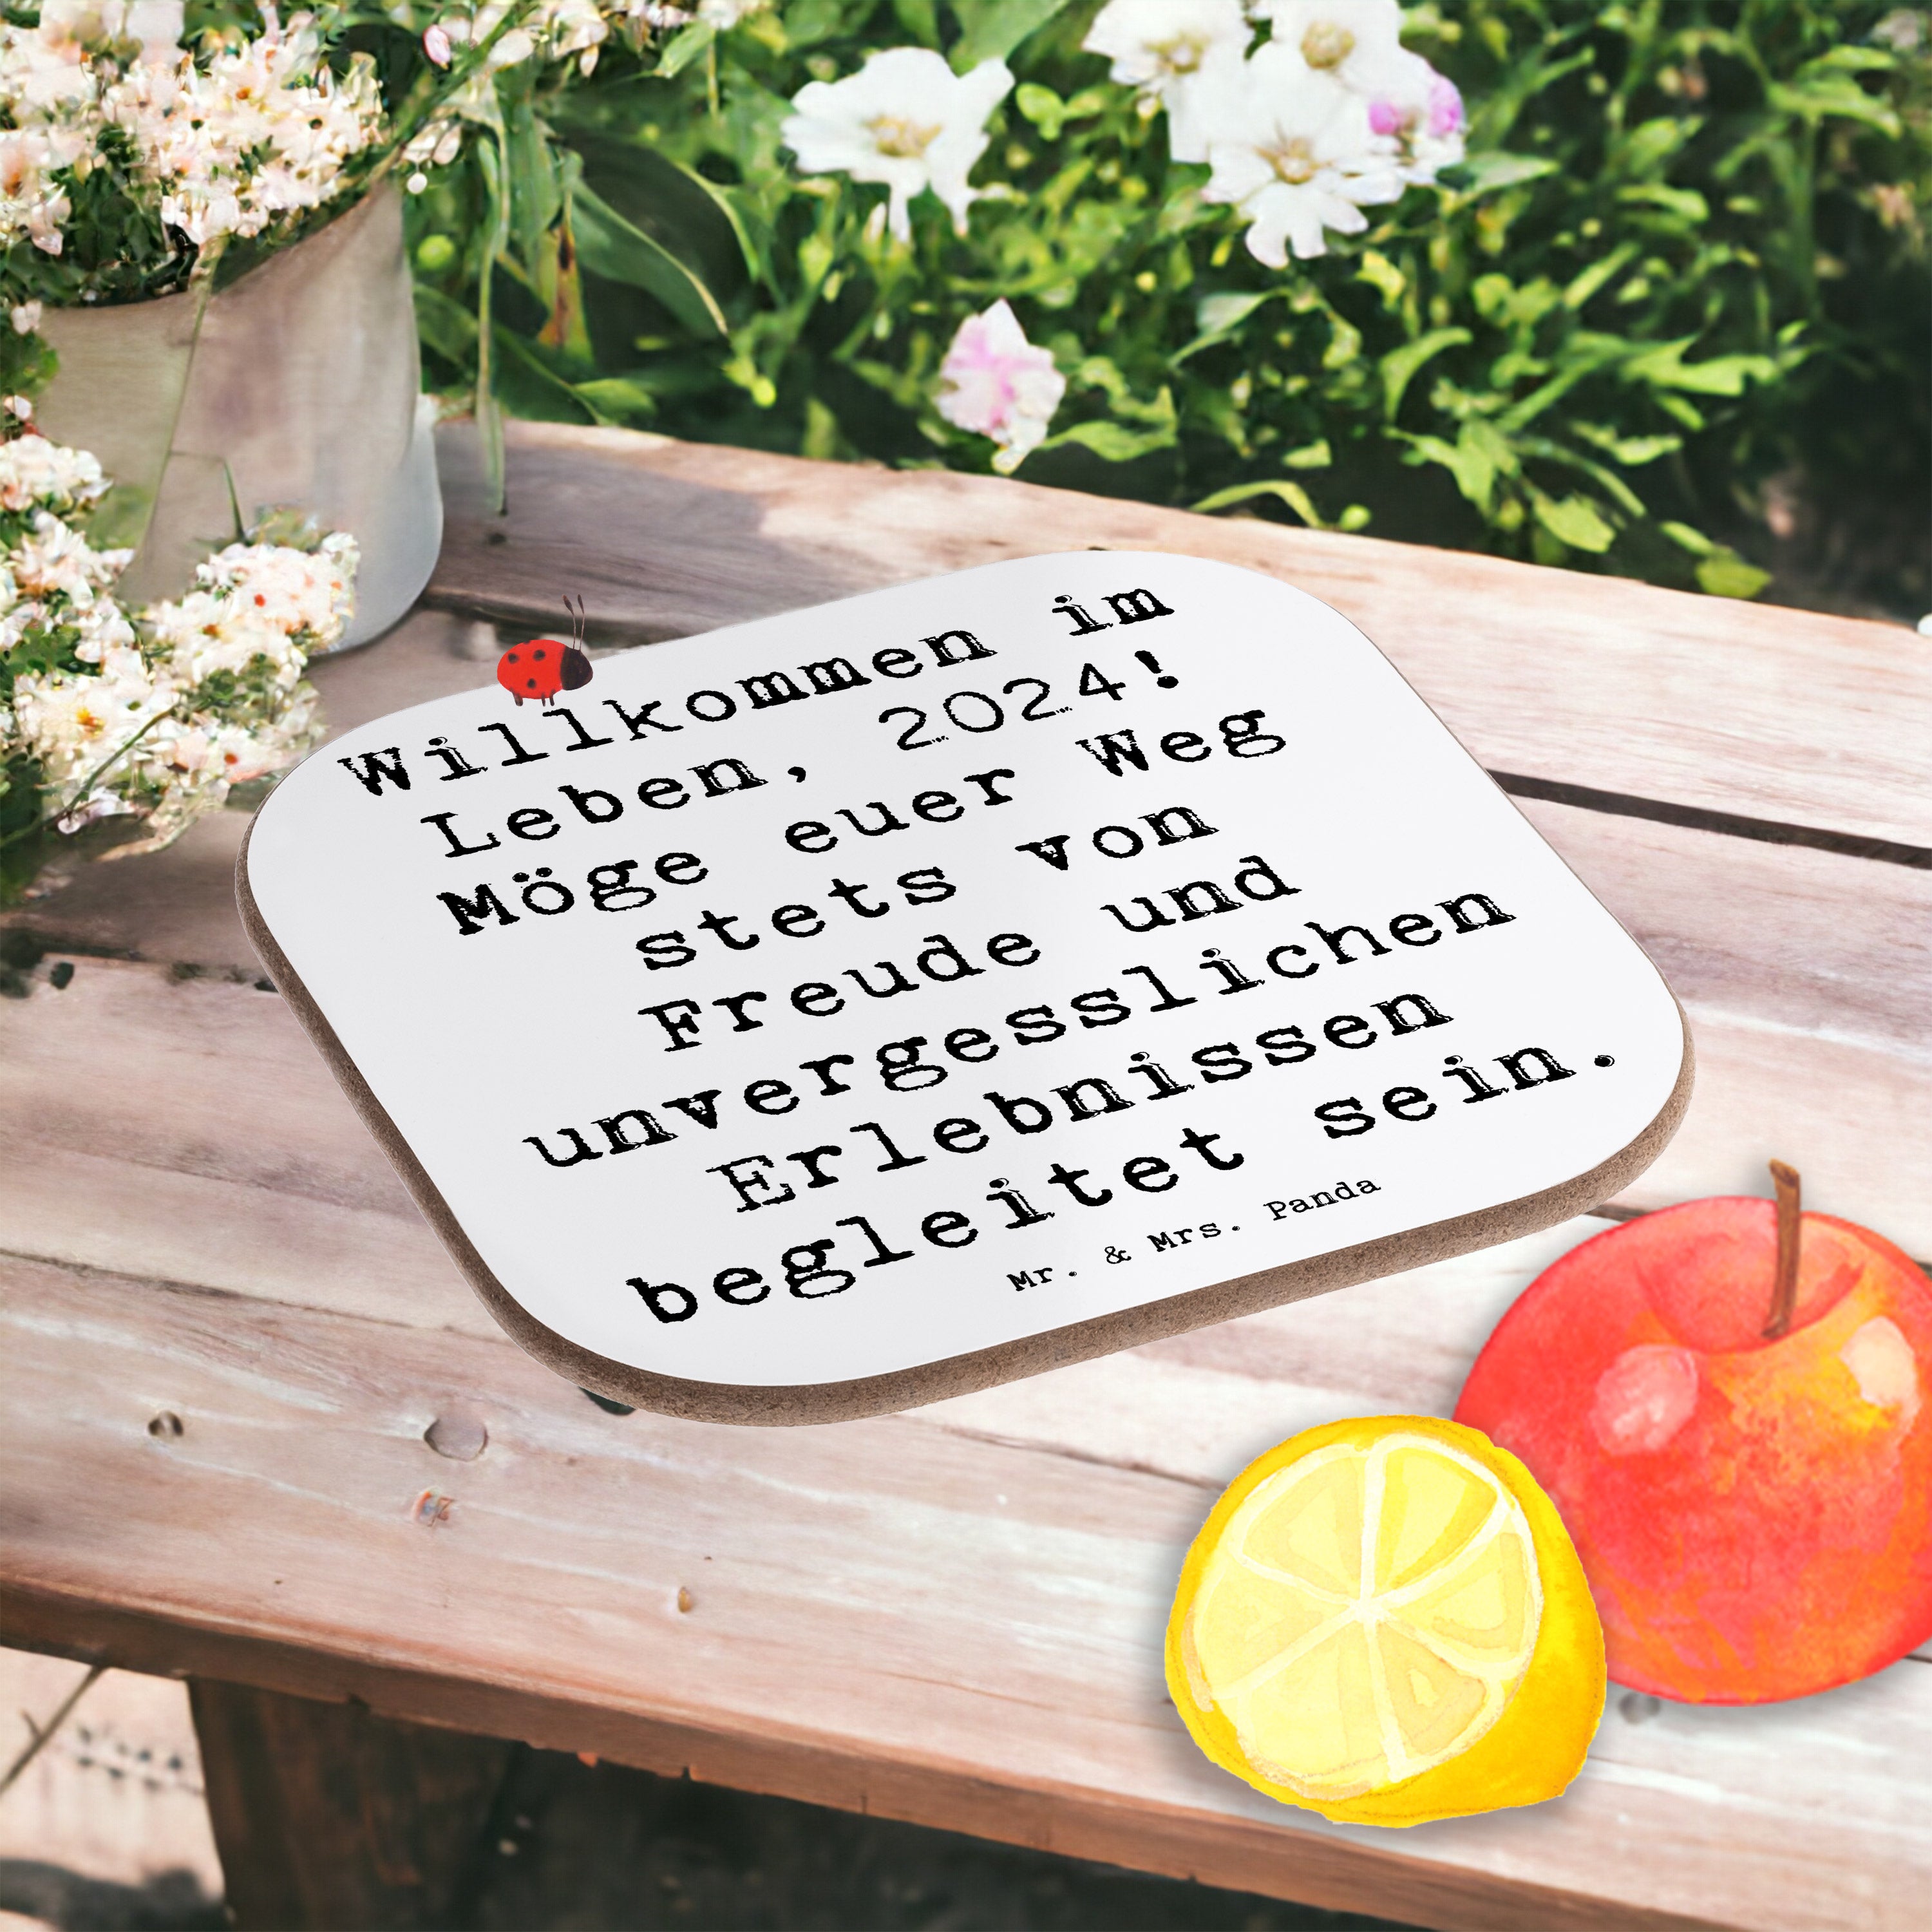 Willkommen im
Leben, 2024!
Möge euer Weg
stets von
Freude und
unvergesslichen
Erlebnissen
begleitet sein.
Mr. & Mrs. Panda